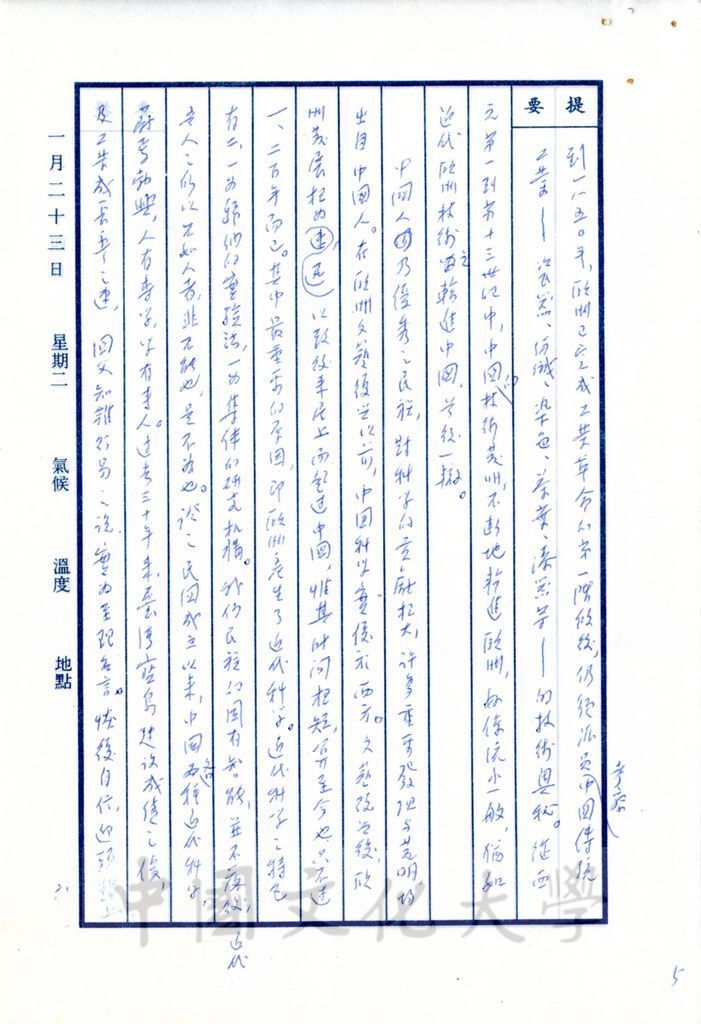 提要
到一八五〇年,歐洲已完成工業革命的第一階段後,仍須派員考察中國傳統
工業——瓷器、紡織、染色、茶葉、漆器等——的技術奧秘。從西
元第一到第十三世紀中,中國的技術發明,不斷地輸進歐洲,好像
近代歐洲技術之輸進中國,若後一轍。
中國人乃優秀之民族,對科學的貢獻極大,許多重要發現與發明,均
出自中國人。在歐洲文藝復興以前,中國科學實優於西方。文藝復興後,歐
洲發展極為迅速,以致後來居上而超過中國,惟其時間極短,算至今也只不過
一、二百年而已。其中最重要的原因,即歐洲產生了近代科學。近代科學之特色
有二,一為歸納的實驗法,一為集體的研究機構。我們民族的固有智能,並不落後,近代
吾人之所以不如人者,非不能也,是不為也。證之民國成立以來,中國各種近代科學,
蔚焉勃興,人有專學,學有專人。過去三十年來,臺灣寶島建設成績之優,
及工業成長率之速,國父知難行易之說,實為至理名言。恢復自信,迎頭趕上
一月二十三日 星期二 氣候 溫度 地點
中國文化大學
5